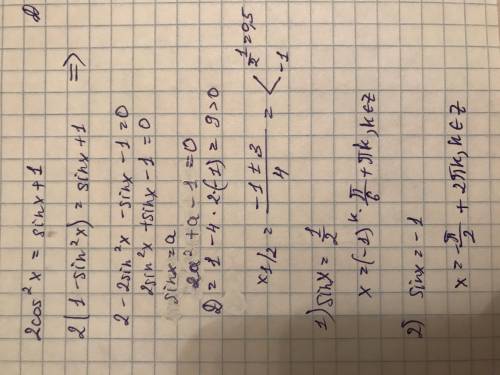 2cos²x = sinx + 1
2(1 - sin²x) = sinx + 1 =>
2 - 2sin²x - sinx - 1 = 0
2sin²x + sinx - 1 = 0
sinx = a
2a² + a - 1 = 0
D = 1 - 4 · 2 · (-1) = 9 > 0
x1/2 = (-1 ± 3)/4 = < 1/2 = 0,5
-1
1) sinx = 1/2
x = (-1)^k · π/6 + πk, k ∈ Z
2) sinx = -1
x = -π/2 + 2πk, k ∈ Z